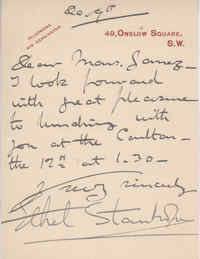 TELEPHONE
KENSINGTON
49, ONSLOW SQUARE,
S.W.
Dear Mons. Gamez -
I look forward
with great pleasure
to lunching with
you at the Carlton -
the 12th at 1.30 -
Yrs very sincerely
Ethel Stanhope